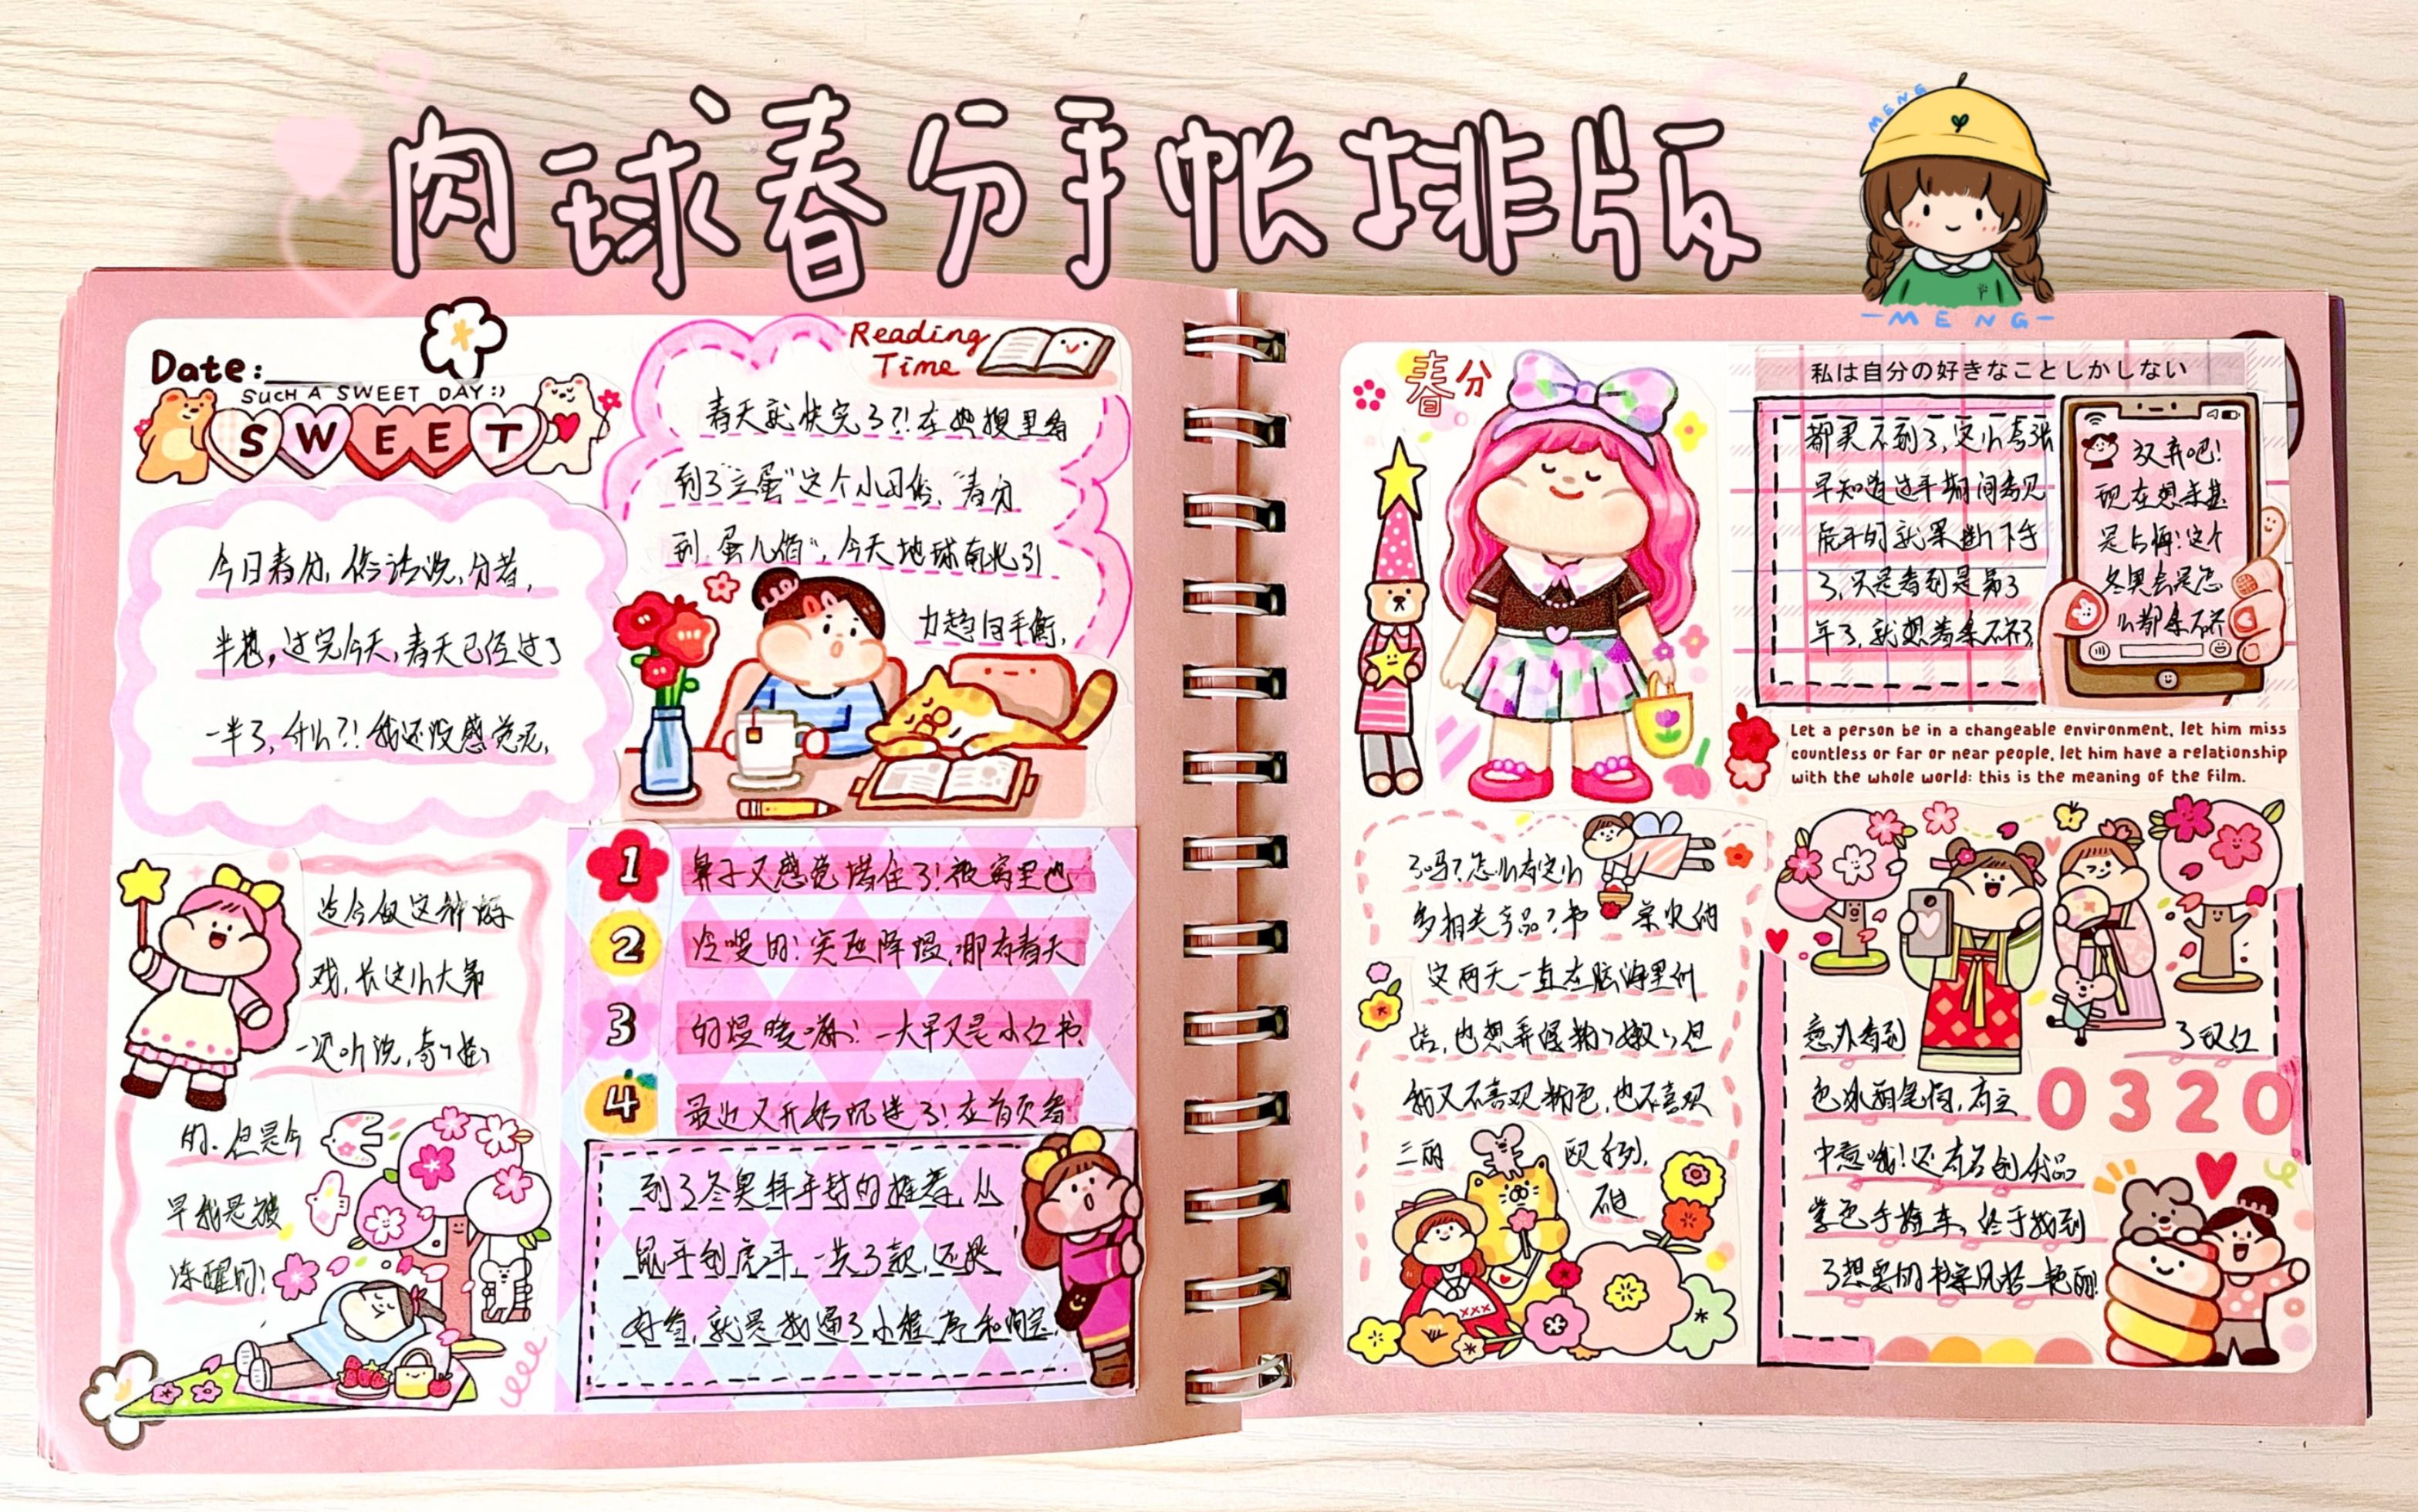 肉球春分手帐排版
MENG
-MENG-
Date:
SUCH A SWEET DAY:)
SWEET
今日春分,俗话说,分者,
半也,过完今天,春天已经过了
一半了,什么?!我还没感觉呢,
Reading
Time
春天就快完了?!在热搜里看
到了"立蛋"这个小习俗,"春分
到,蛋儿俏",今天地球南北引
力趋向平衡,
适合做这种游
戏,长这么大第
一次听说,奇奇怪怪
的、但是今
早我是被
冻醒的!
1 鼻子又感觉堵住了!被窝里也
2 冷嗖的!突然降温,哪有春天
3 的温暖嘛!一大早又是小红书
4 最近又开始沉迷了!在首页看
到了冬奥拜年封的推荐,从
鼠年到虎年,一共3款,还挺
好看,就是我逼了小程序和淘宝,
春分
私は自分の好きなことしかしない
都买不到了,这么夸张
早知道过年期间看见
虎年的就果断下手
了,只是看到是第3
年了,就想着集不齐了
放弃吧!
现在想来甚
是后悔!这个
冬奥会是怎
么都集不齐
Let a person be in a changeable environment, let him miss
countless or far or near people, let him have a relationship
with the whole world: this is the meaning of the film.
了吗?怎么有这么
多相关产品?书桌收纳
这两天一直在脑海里纠
结,也想弄得粉粉嫩嫩,但
我又不喜欢粉色,也不喜欢
三丽欧系列,
不过
意外看到了玫红
色水瓶笔筒,有
0320
中意哦!还有名创优品
紫色手推车,终于找到
了想要的书桌风格—艳丽!